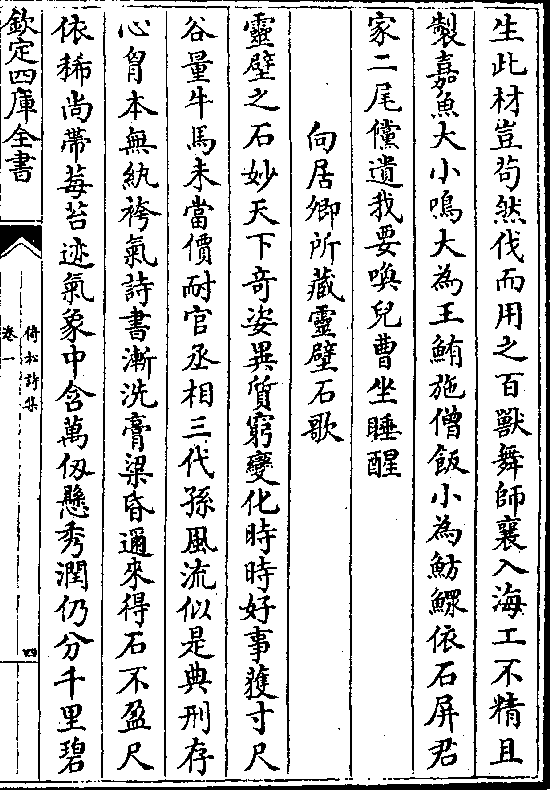 生此材豈茍然伐而用之百獸舞師襄入海工不精且
製嘉魚大小鳴大為王鮪施僧飯小為魴鰥依石屏君
家二尾儻遺我要喚兒曹坐睡醒
向居卿所藏靈壁石歌
靈壁之石妙天下奇姿異質窮變化時時好事獲寸尺
谷量牛馬未當價耐官丞相三代孫風流似是典刑存
心胷本無紈袴氣詩書漸洗膏粱昏邇來得石不盈尺
依稀尚帶莓苔迹氣象中含萬仭懸秀潤仍分千里碧
欽定四庫全書
倚松詩集
卷一
四